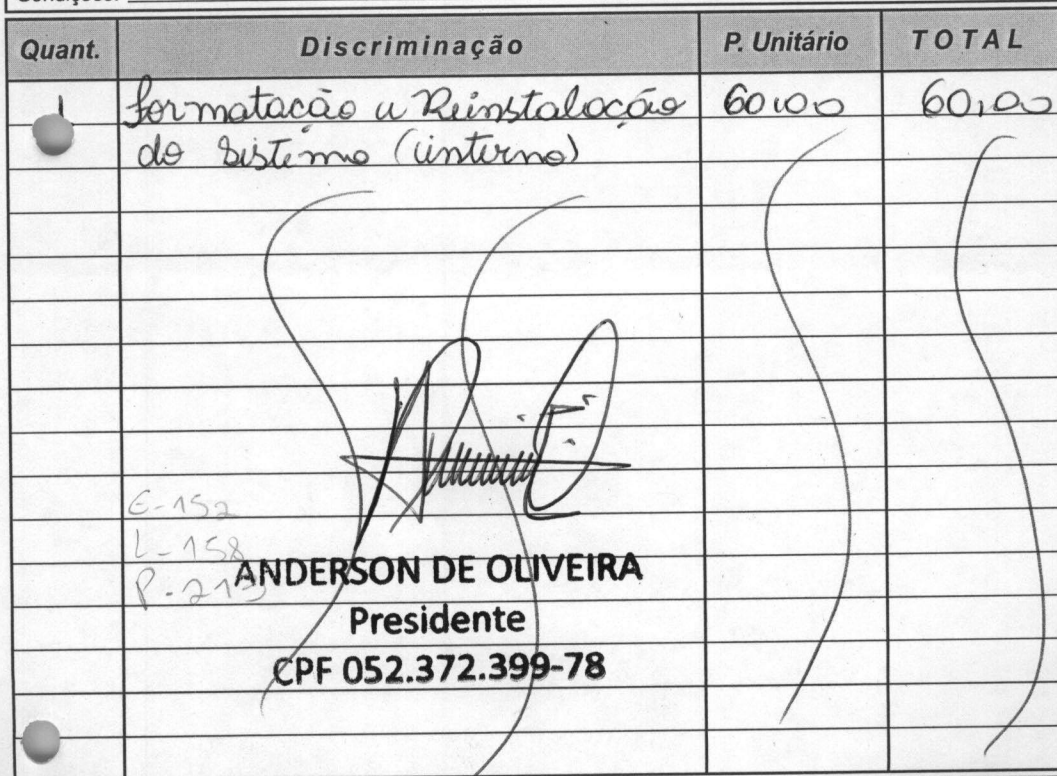 Quant. Discriminação P. Unitário TOTAL
1 formatação e Reinstalação 60,00 60,00
do sistema (interno)
E-152
L-158
P-215
ANDERSON DE OLIVEIRA
Presidente
CPF 052.372.399-78